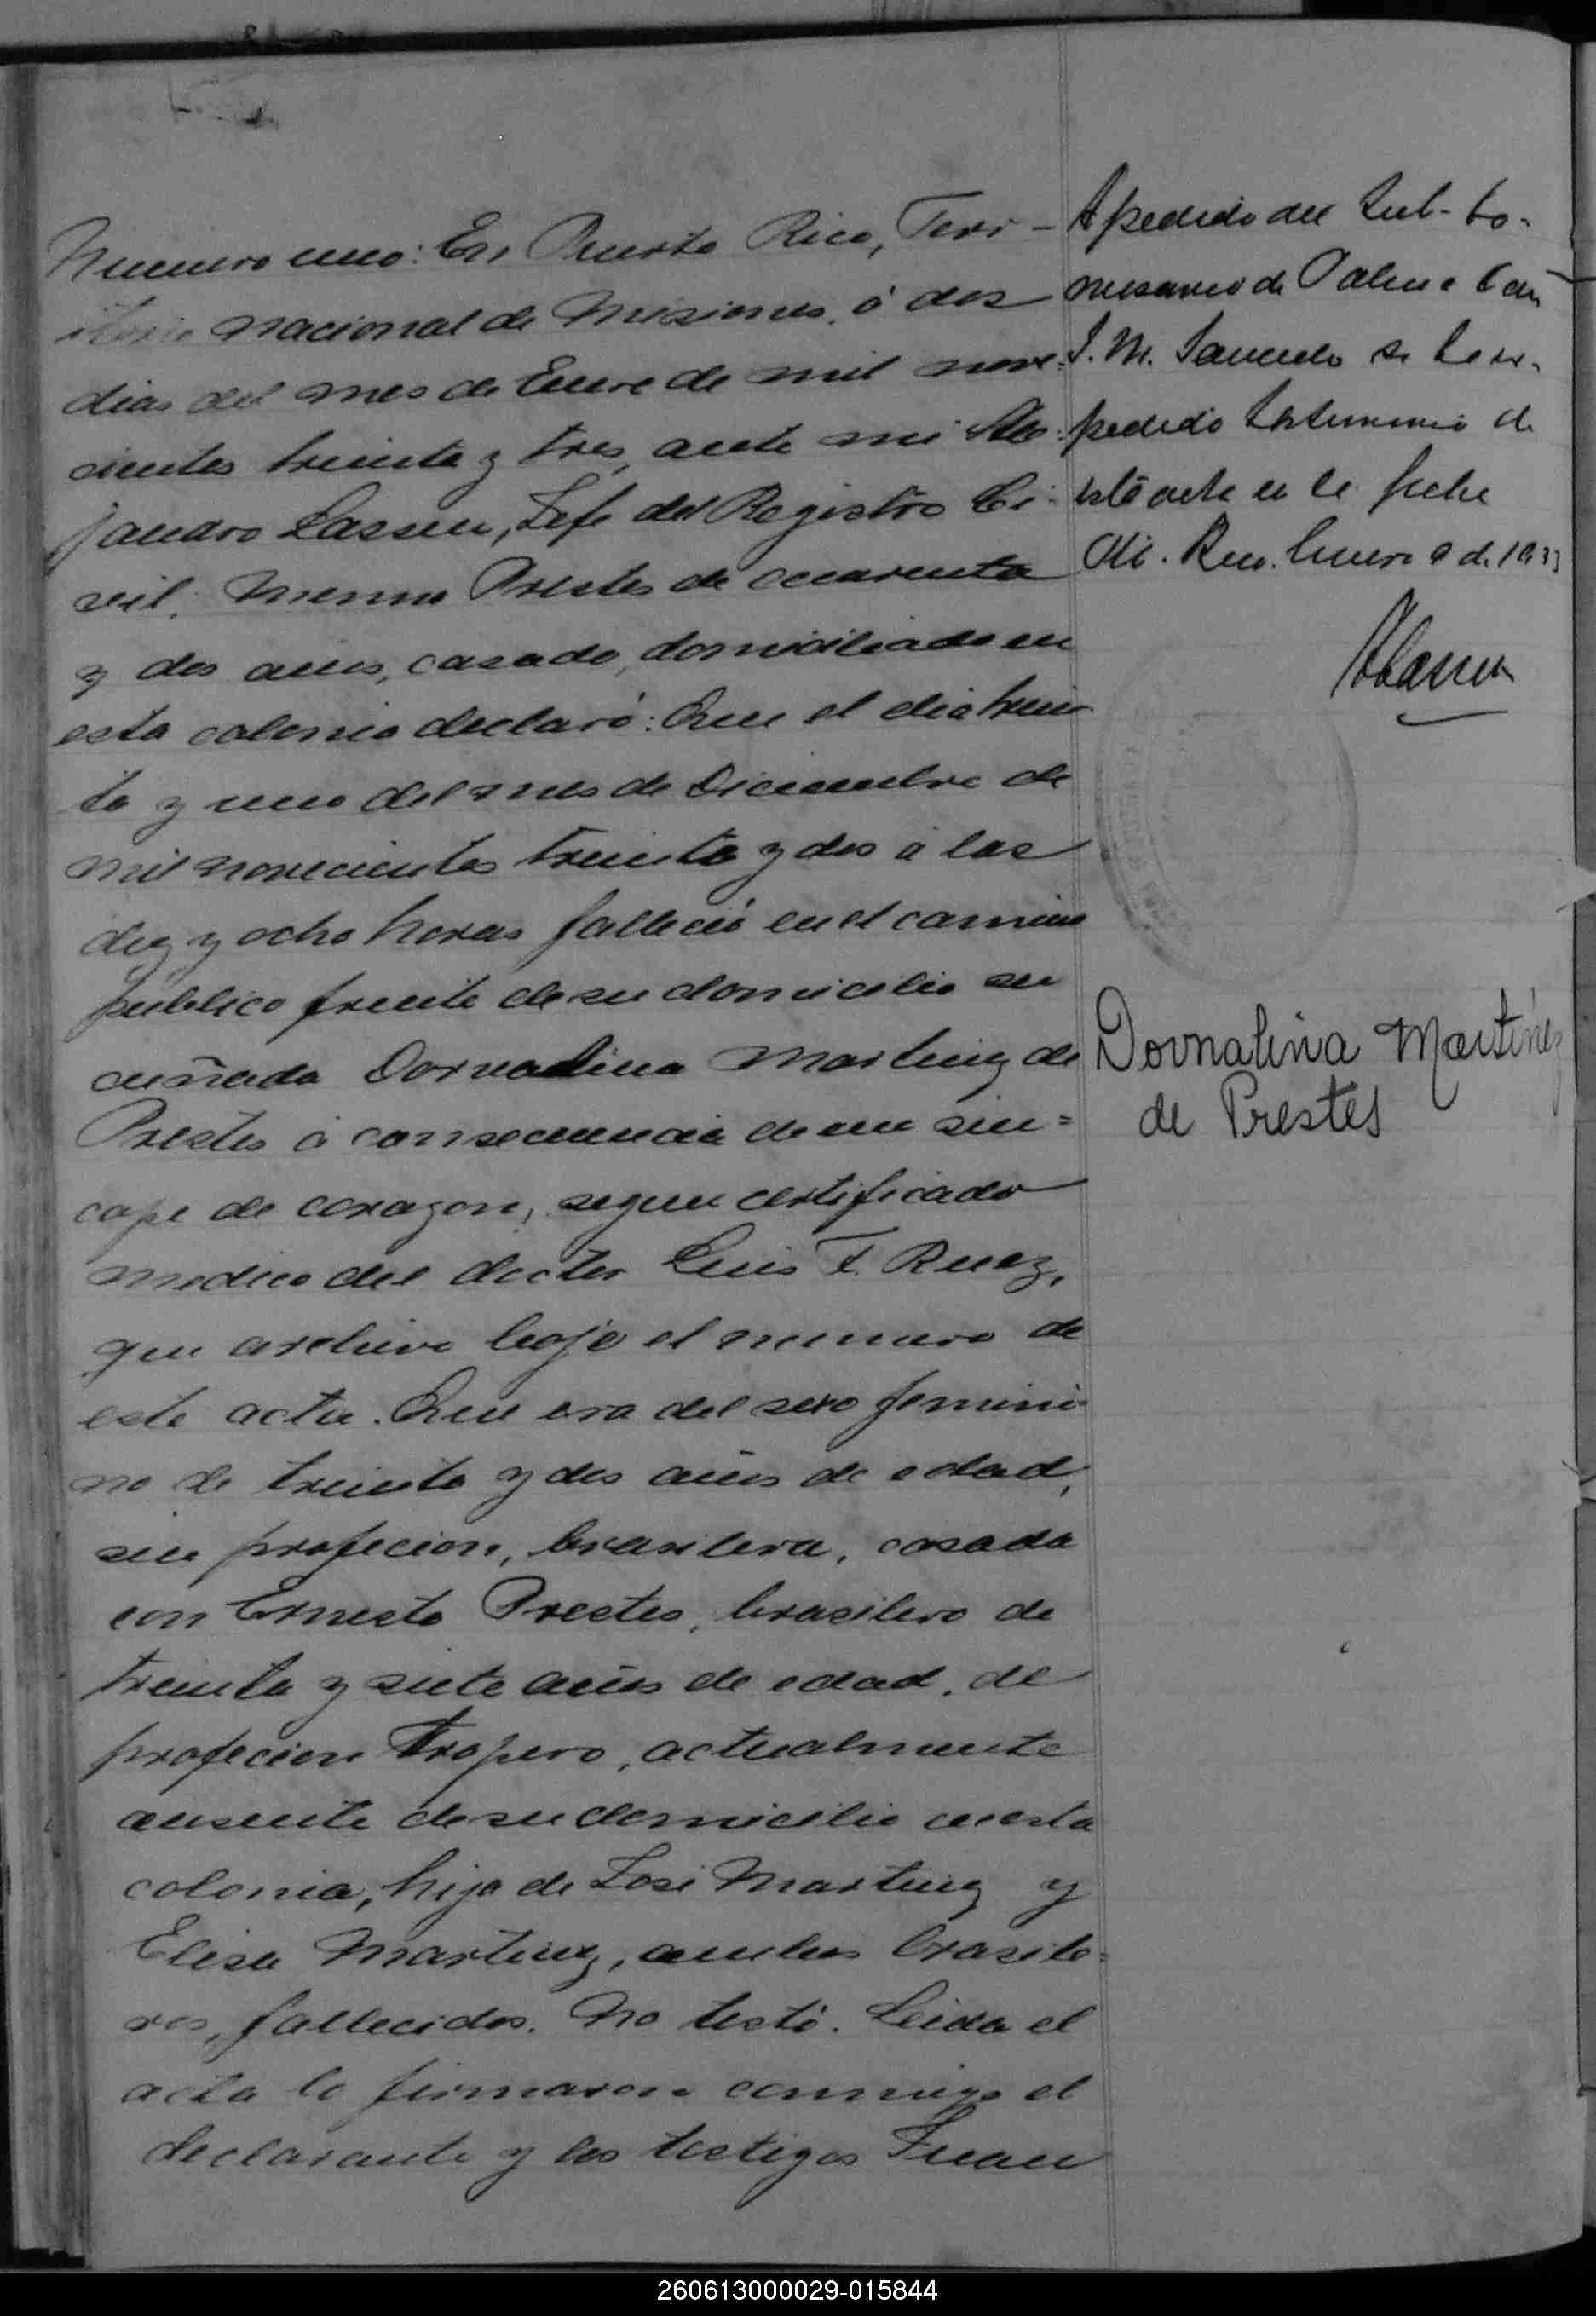 Numero uno: En Puerto Rico, Terr-
itorio nacional de Misiones, á dos
dias del mes de Enero de mil nove-
cientos treinta y tres, ante mi Ale-
jandro Lassen, Jefe del Registro Ci-
vil, Menno Prestes de cuarenta
y dos años, casado, domiciliado en
esta colonia declaró: Que el dia trein
ta y uno del mes de Diciembre de
mil novecientos treinta y dos a las
diez y ocho horas falleció en el camino
publico frente de su domicilio su
cuñada Dornalina Martinez de
Prestes á consecuencia de un sin=
cope de corazon, segun certificado
medico del doctor Luis F. Ruez,
que archivo bajo el numero de
este acta. Que era del sexo femini-
no de treinta y dos años de edad,
sin profecion, brasilera, casada
con Ernesto Prestes, brasilero de
treinta y siete años de edad, de
profecion Tropero, actualmente
ausente de su domicilio en esta
colonia, hija de José Martinez y
Elisa Martinez, ambos brasile=
ros, fallecidos. No testó. Leida el
acta la firmaron conmigo el
declarante y los testigos Juan
A pedido del Sub-Co-
misario de Don
J. M. se ha ex-
pedido testimonio de
esta acta en la fecha
Rico. Enero 9 de 1933
ALassen
Dornalina Martinez
de Prestes
260613000029-015844